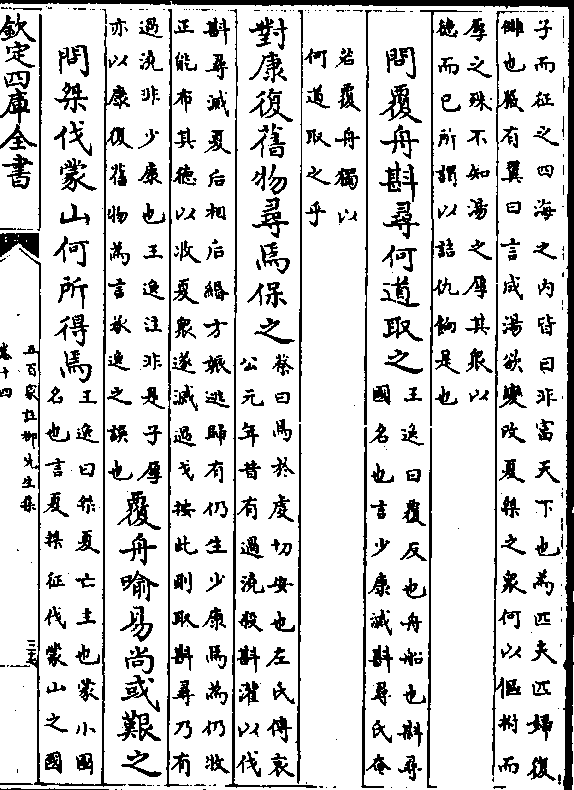 子而征之四海之內皆曰非富天下也為匹夫匹婦復
讎也嚴有翼曰言成湯欲變改夏桀之衆何以傴拊而
厚之殊不知湯之厚其衆以
徳而已所謂以誥仇餉是也
問覆舟斟尋何道取之
王逸曰覆反也舟船也斟尋
國名也言少康滅斟尋氏奄
若覆舟獨以
何道取之乎
對康復舊物尋焉保之
蔡曰焉於虔切安也左氏傳哀
公元年昔有過澆殺斟灌以伐
斟尋滅夏后相后緡方娠逃歸有仍生少康焉為仍牧
正能布其徳以收夏衆遂滅過戈按此則取斟尋乃有
過澆非少康也王逸注非是子厚
亦以康復舊物為言承逸之誤也
覆舟喻易尚或艱之
問桀伐蒙山何所得焉
王逸曰桀夏亡王也蒙小國
名也言夏桀征伐蒙山之國
欽定四庫全書
五百家註柳先生集
卷十四